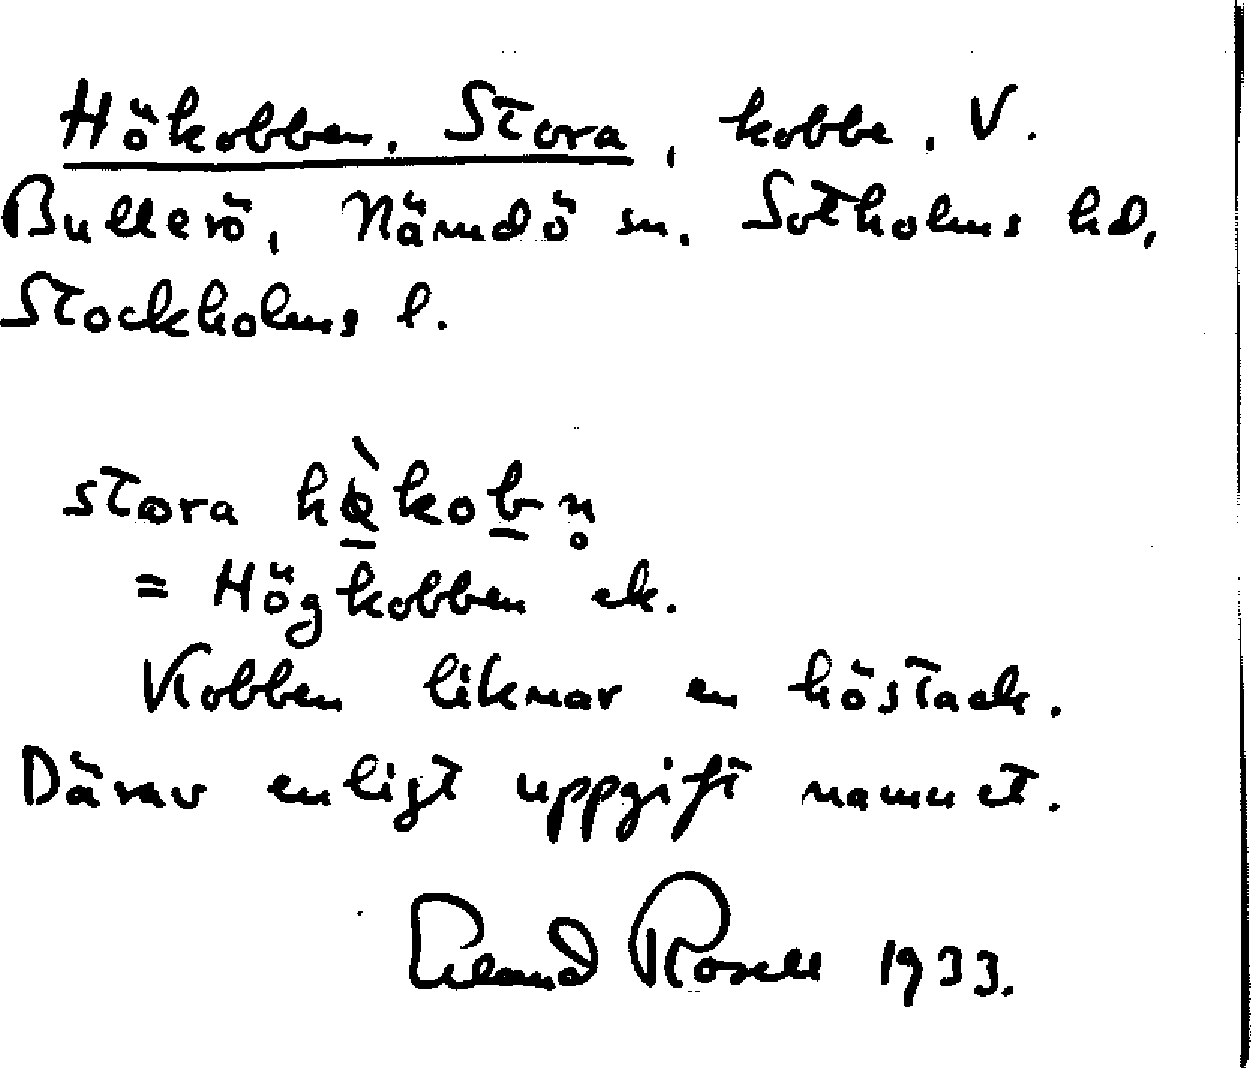 Hökobben, Stora, kobbe, V.
Bullerö, Nämdö sn. Sotholms hd,
Stockholms l.
stora
= Högkobben ek.
Kobben liknar en höstack.
Därav enligt uppgift namnet.
Erland Rosell 1933.